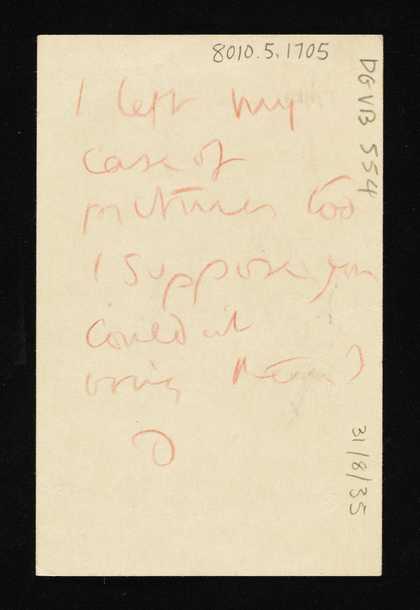 8010.5.1705
DGVB 554
I left my
case of
pictures too
I suppose you
couldnt
bring them?
D
31/8/35